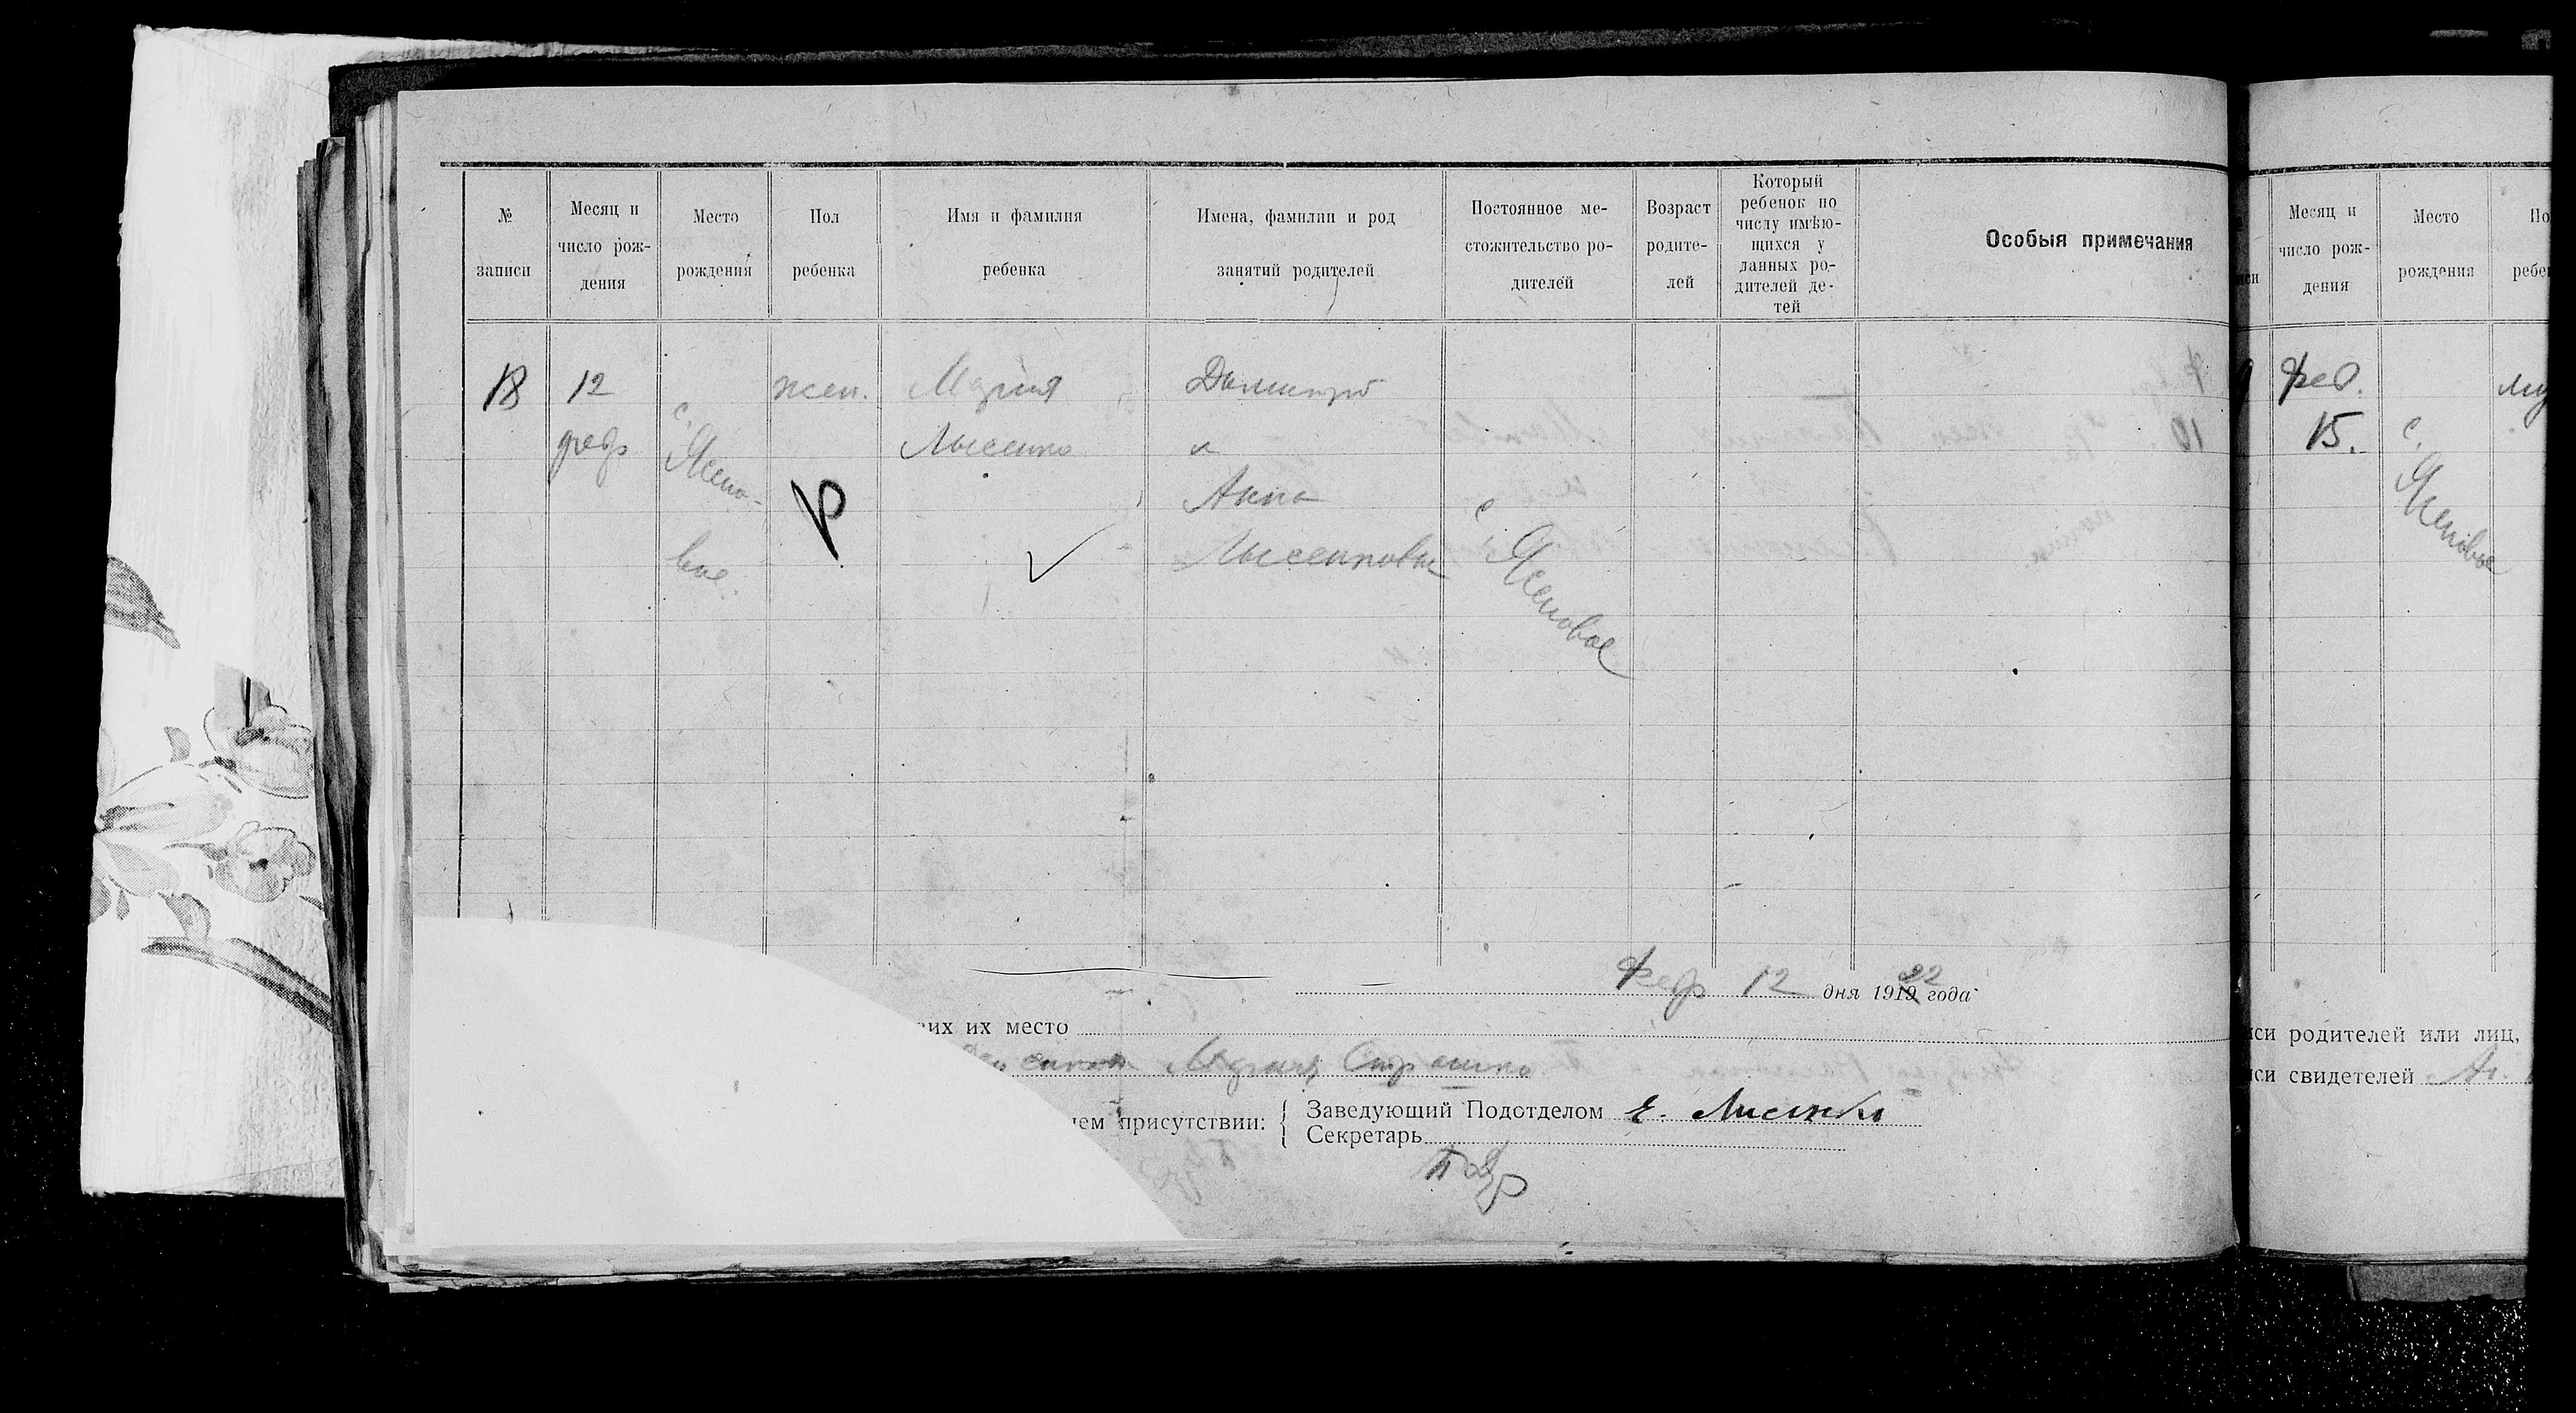 № записи
Месяц и число рож-дения
Место рождения
Пол ребенка
Имя и фамилия ребенка
Имена, фамилии и род занятий родителей
Постоянное ме-стожительство ро-дителей
Возраст родите-лей
Который ребенок по числу имѣю-щихся у данных ро-дителей де-тей
Особыя примечания
18
12
февр
с.
Ясено-
вое.
жен.
Мария
Лысенко
Дымитрий
и
Анна
Лысенковы
с. Ясеновое
февр 12 дня 1919 22 года
их их место
Мария
ем присутствии:
Заведующий Подотделом Е. Лисенко
Секретарь
Месяц и число рож-дения
Место рождения
По
ребе
Фев.
15.
с.
Ясеновое
иси родителей или лиц,
иси свидетелей